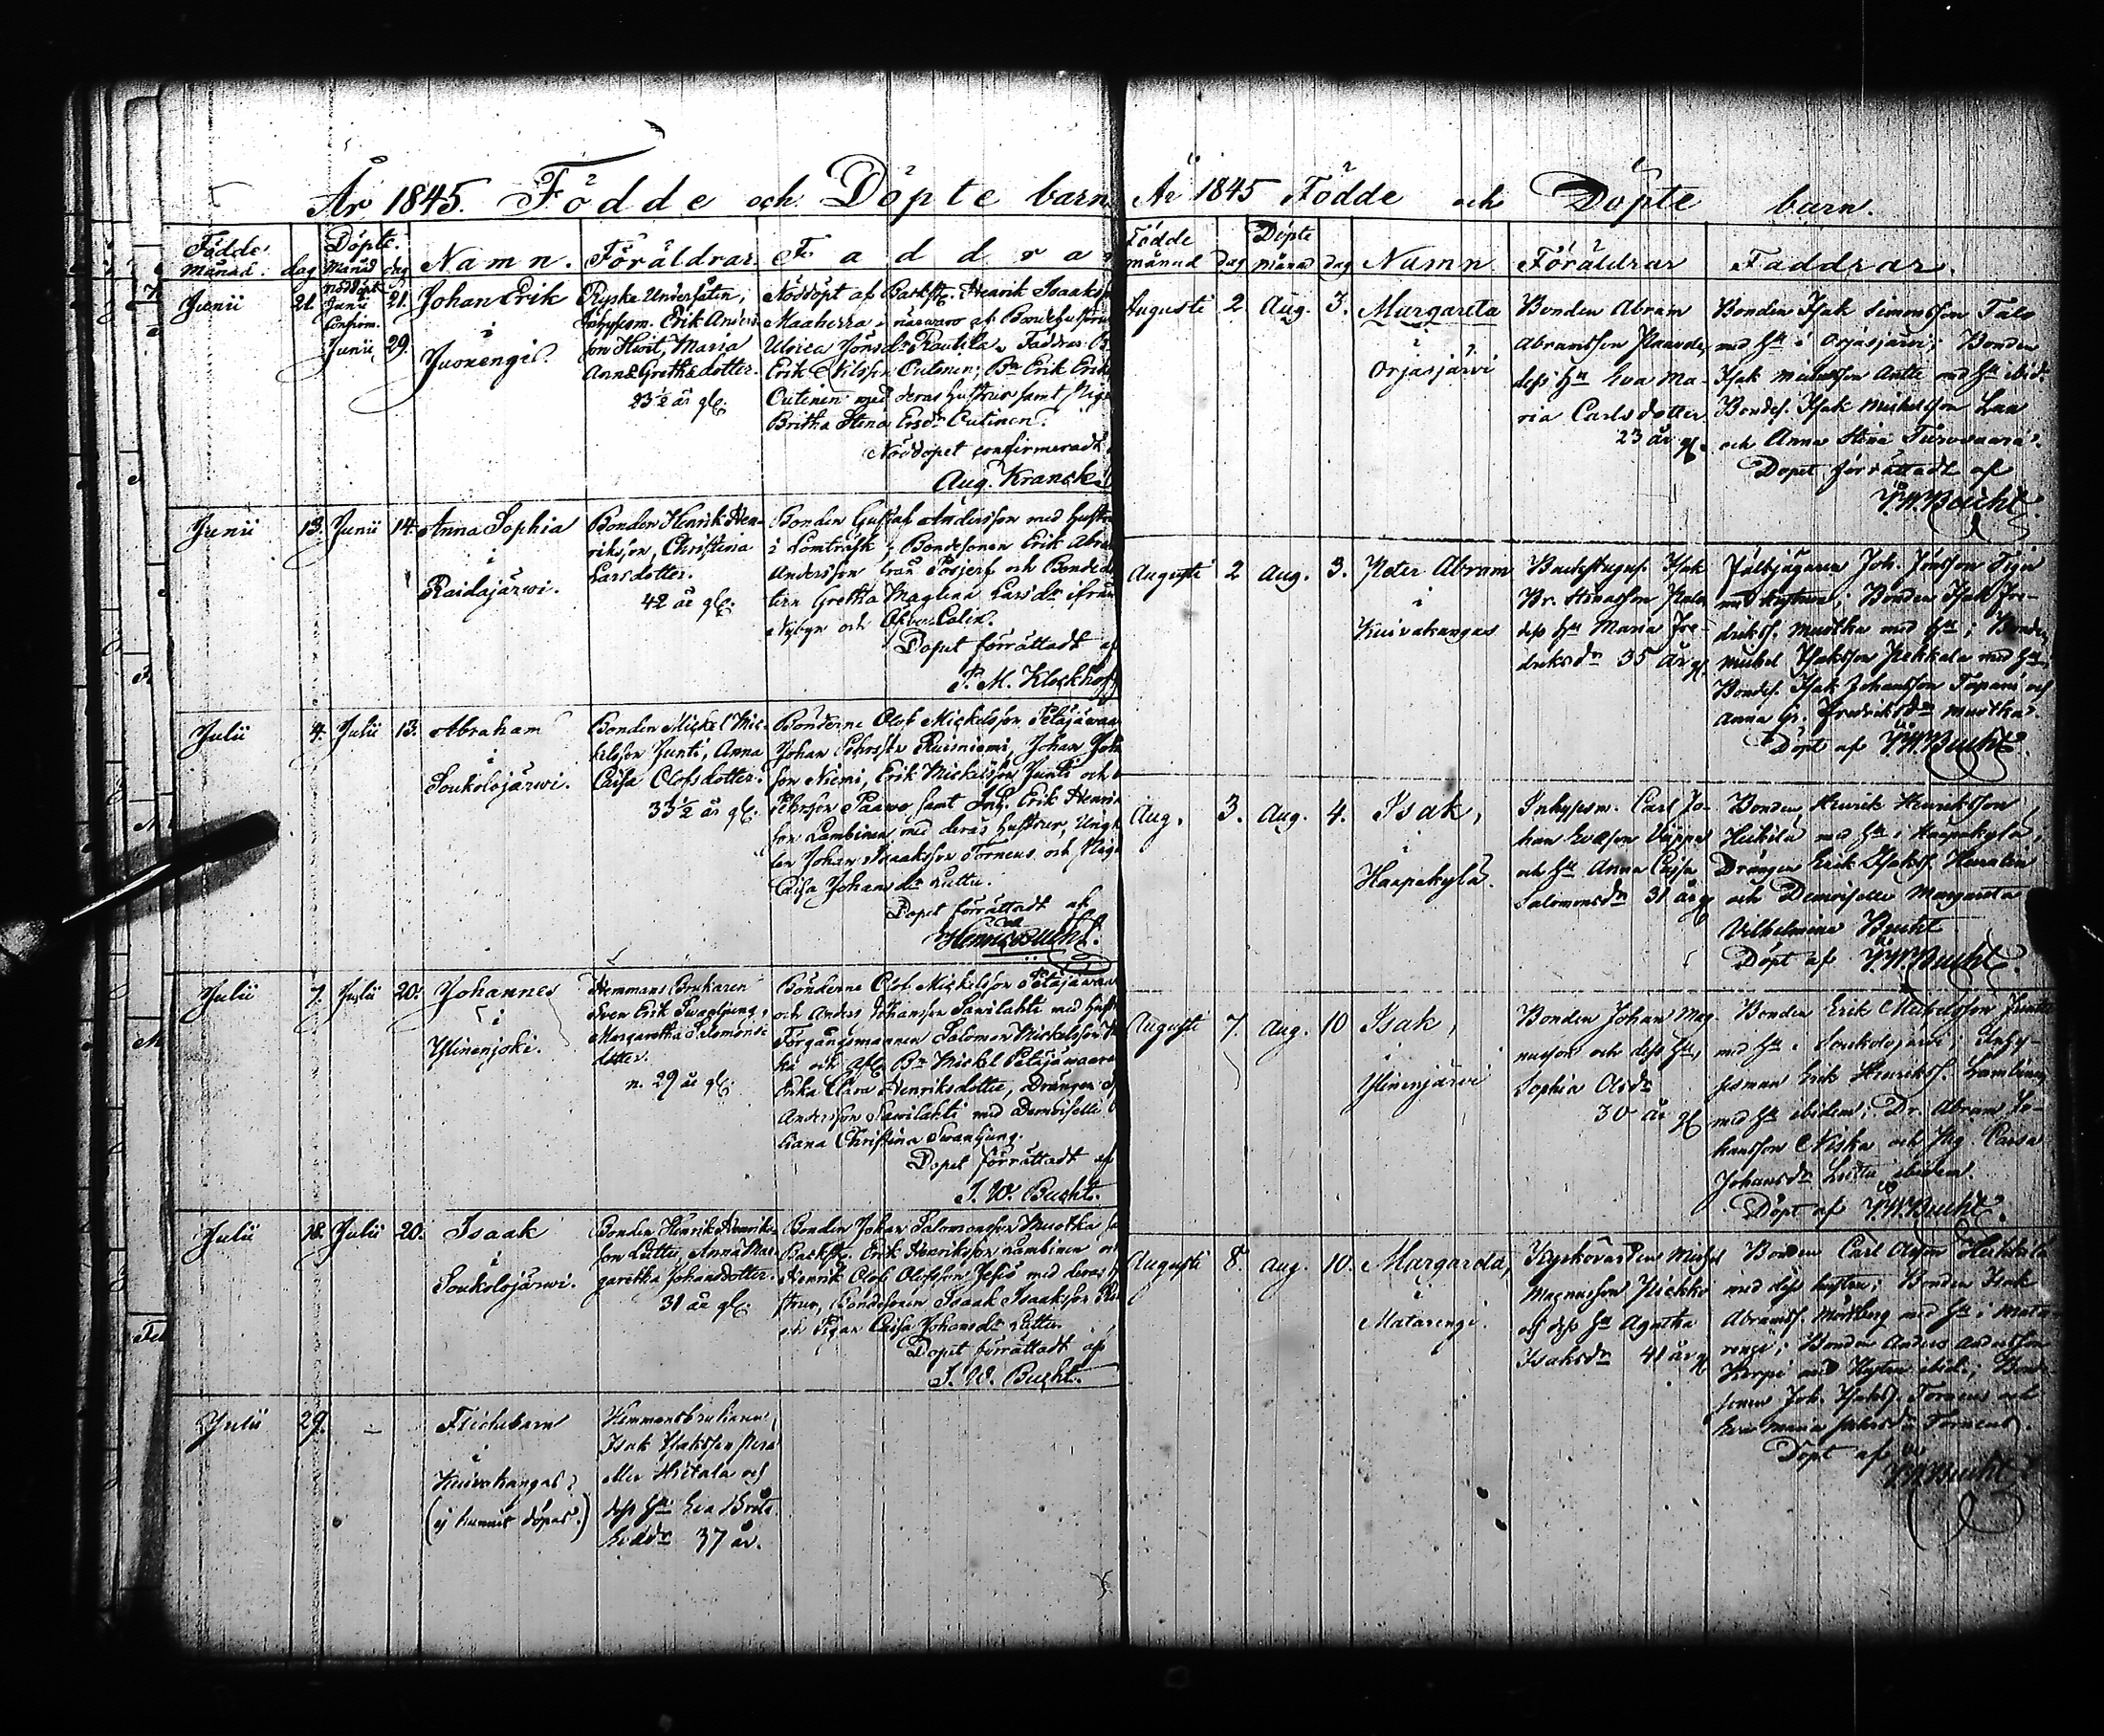 År 1845. Födde och Döpte barn
Födde månad. dag Döpte. Månad dag Namn. Föräldrar. Faddrar
Junii 21. Nöddöpt Junii 21. Confirm. Junii 29.
Johan Erik
i
Juoxengi.
Ryske Undersåten,
Inhysesm. Erik Anders
son Hvit, Maria
Anna Grethesdotter.
23½ år gl.
Nöddöpt af Backst. Henrik Isaaks
Maaherra, närwaro af Bondehustrun
Ulrica Jönsdr Rautila. Faddrar: Bn
Erik Nilsson Outinen, Bn Erik Eriks
Outinen med deras hustrur samt Pig
Britha Stena Ersdr Outinen.
Nöddopet confirmeradt
Aug. Kranck.
Junii 13. Junii 14.
Anna Sophia
i
Raidajärwi.
Bonden Henrik Hen-
riksson, Christina
Larsdotter.
42 år gl.
Bonden Gustaf Andersson med hustru
i Lomträsk, Bondesonen Erik Abra
Andersson från Posjerf och Bondedot
tern Gretha Maglena Larsdr ifrån
Nybyn och Öfver Calix.
Dopet förrättadt af
P. M. Klockhoff
Julii 4. Julii 13.
Abraham
i
Soukolojärwi.
Bonden Mickel Mic-
kelsson Junti, Anna
Caisa Olofsdotter.
33½ år gl.
Bönderne Olof Mickelsson Pelajäwaa
Johan Pehrsson Ruisniemi, Johan Joh
son Niemi, Erik Mickelsson Junti och
Pehrsson Paawo samt Inh. Erik Henrik
son Lambinen med deras hustrur, Ungk
len Johan Isaaksson Torneus och Pigan
Caisa Johansdr Luttu.
Dopet förrättadt af
Henric Bucht.
Julii 7. Julii 20.
Johannes
i
Ylinenjoki.
Hemmans Brukaren
Sven Erik Swanljung,
Margaretha Salomons-
dotter.
n. 29 år gl.
Bönderne Olof Mickelsson Pelajäwaara
och Anders Johansson Sawilahti med hust
Förgångsmannen Salomon Mickelsson
ka och Bn Mickel Pelajäwaara
Erika Clara Henriksdotter, Drängen
Andersson Sawilahti med Demoiselle
liana Christina Swanljung.
Dopet förrättadt af
J. W. Bucht.
Julii 18. Julii 20.
Isaak
i
Soukolojärwi.
Bonden Henrik Henriks-
son Luttu, Anna Mar-
garetha Johansdotter.
31 år gl.
Bonden Johan Salomonsson Muotka
Backst. Erik Henriksson Lambinen och
Henrik Olof Olofsson Jesiö med deras
strur, Bondesonen Isaak Isaaksson
och Pigan Caisa Johansdr Luttu.
Dopet förrättadt af
J. W. Bucht.
Julii 29. –
Flickebarn
i
Kuivakangas
(ej hunnit döpas.)
Hemmansbrukaren,
Isak Isaksson Pera
eller Hietala och
dess hu Eva Brita
37 år.
År 1845 Födde och Döpte barn.
Födde månad Dag Döpte månad dag Namn Föräldrar Faddrar.
Augusti 2 Aug. 3.
Margareta
i
Orjasjärvi
Bonden Abram
Abramsson
dess hu Eva Ma-
ria Carlsdotter
23 år gl.
Bonden Isak Simonsson Talo
med hu i Orjasjärvi; Bonden
Isak Mickelsson Antti med hu ibid.
Bondes. Isak Mickelsson
och Anna Stina
Dopet förrättadt af
J.W.Bucht.
Augusti 2 Aug. 3.
Peter Abram
i
Kuivakangas
Isak
dess hu Maria Fre-
driksdr 35 år gl.
Joh. Jönsson
med hustrun; Bonden Isak Fre-
drikss. Muotka med hu; Bonden
Mickel Isaksson Pekkala med hu
Bondes. Isak Johansson Tapani och
Anna Gr. Fredriksdr Muotka.
Döpt af J.W.Bucht.
Aug. 3. Aug. 4.
Isak,
i
Haapakylä.
Inhysesm. Carl Jo-
han
och hu Anna Cajsa
Salomonsdr 31 år gl
Bonden Henrik Henriksson
Heikilä med hu i Haapakylä,
Drängen Erik Isakss.
och Demoiselle Margareta
Vilhelmina Bucht
Döpt af J.W.Bucht.
Augusti 7. Aug. 10
Isak,
i
Ylinenjärvi
Bonden Johan Mag
nusson och dess hu,
Sophia Olsdr
30 år gl
Bonden Erik Mickelsson Junti
med hu i Soukolojärvi; Inhy-
sesman Erik Henrikss. Lambinen
med hu ibidem; Dr. Abram Jo-
hansson Niska och Pig. Caisa
Johansdr Luttu ibidem.
Döpt af J.W.Bucht.
Augusti 8. Aug. 10.
Margareta,
i
Matarengi.
Kyrkovärden Mickel
Magnusson
och dess hu Agatha
Isaksdr 41 år gl
Bonden Carl Olsson Heikkilä
med dess hustru; Bonden Isak
Abramss. med hu i Mata-
rengi; Bonden Anders Andersson
Korpi med Hustru ibid.; Bonde-
sonen Joh. Isakss. Torneus och
Eva Maria Torneus.
Döpt af
J.W.Bucht